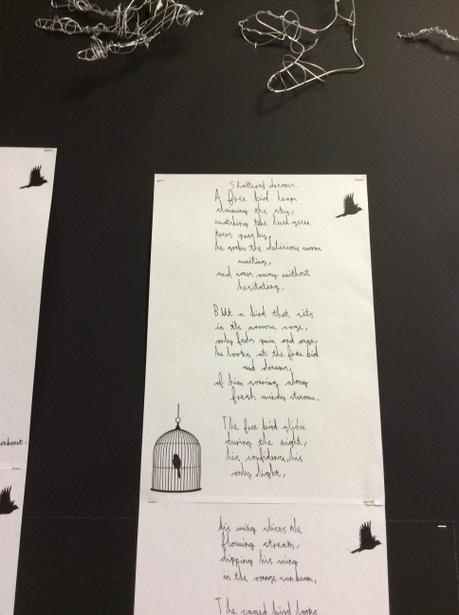 Shattered dreams.
A free bird leaps
claiming the sky,
watching the lush green
trees pass by,
he grabs the delicious worm
waiting,
and soars away without
hesitating.
But a bird that sits
in its narrow cage,
only feels pain and rage,
he looks at the free bird
and dreams,
of him soaring along
fresh windy streams.
The free bird glides
during the night,
his confidence, his
only light,
about.
his wing slices the
flowing stream,
dipping his wing
in the orange sun beam,
The caged bird looks